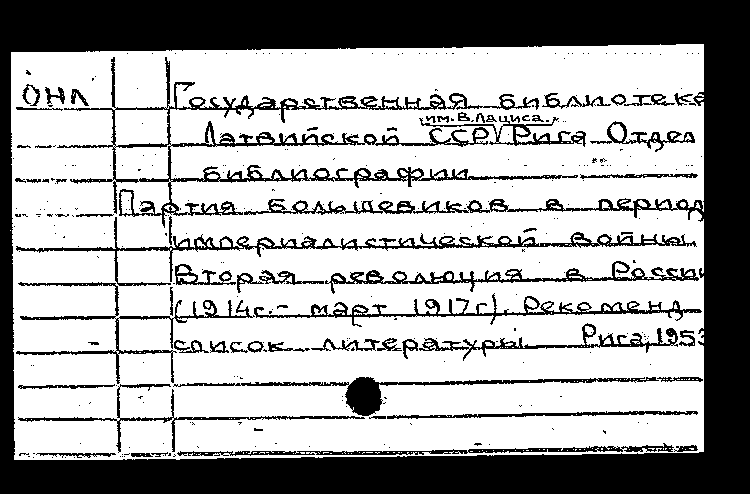 ОНЛ Государственная библиотека
им. В. Лациса.
Латвийской ССР Рига Отдел
библиографии
Партия большевиков в период
империалистической войны.
Вторая революция в России
(1914г.- март 1917г). Рекоменд
список литературы Рига, 1953